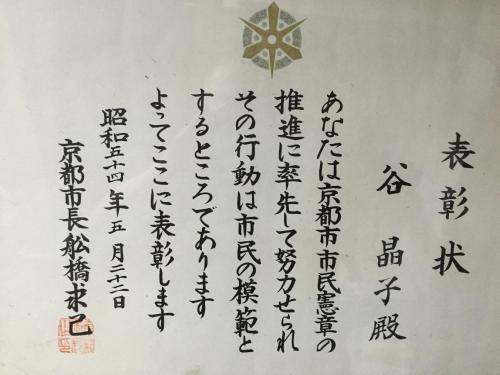 表彰状
谷晶子殿
あなたは京都市市民憲章の
推進に率先して努力せられ
その行動は市民の模範と
するところであります
よってここに表彰します
昭和五十四年五月二十二日
京都市長舩橋求己